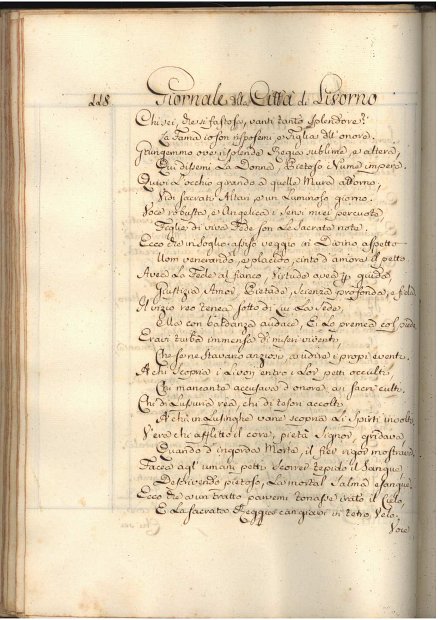 118 Giornale della Città di Livorno
Chi sei, diessi fastosa, vanti tanto splendore?
La Fama io son risposemi e Figlia dell'onore.
Giungemmo ove risplende Regia sublime, e altera,
Qui dissemi La Donna, Pietoso Nume impera.
Quivi L'occhio girando a quelle Mura attorno,
Vidi sacrato Altar, e un Luminoso giorno.
Voce robusta, e Angelica i sensi miei percuote
Figlie di viva Fede son Le Sacrate note.
Ecco che in soglio assiso veggio in Divino aspetto
Uom venerando, e placido, cinto d'amore il petto.
Avea La Fede al fianco, Virtude avea per guida
Giustizia Amor, Pietade, Scienza profonda, e fida
Il vizio reo tenea sotto di Lui La Sede,
Ella con baldanza audace, E Lo premea col piede
Eravi turba immensa di miseri viventi
Che se ne stavano anziosi, a udire i propri eventi.
A chi scopria i Livori entro i Lor petti occulti
Chi mancante accusava d'onore, ai sacri culti.
Chi di Lussuria rea, chi di tesori accolti
A chi in Lusinghe vane scopria Li Spirti involti
V'era chi afflitto il core, pietà Signor, gridava
Quando d'ingorda Morte, il fier rigor mostrava
Facea agl'umani petti scorrer tepido il Sangue
Descrivendo pietoso, La mortal Salma esangue
Ecco che a un tratto parvemi tonasse irato il Cielo,
E La sacrata Reggia cangiarsi in tetro Velo,
Voce